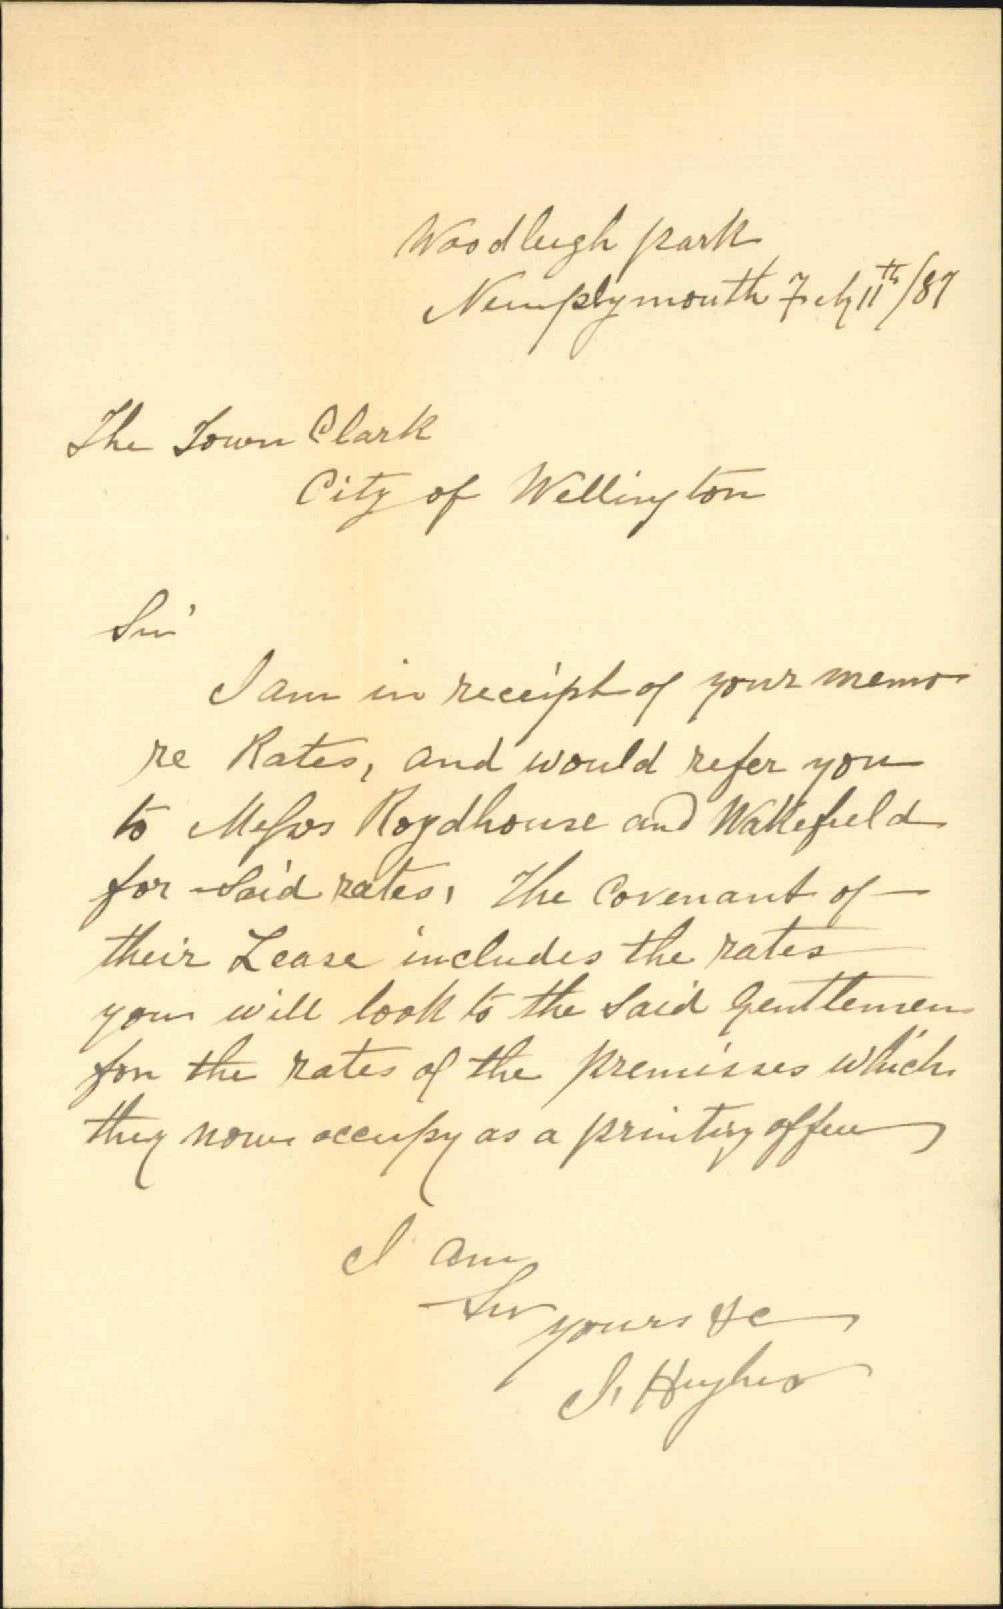 Woodleigh park
Newplymouth Feby 11th/87
The Town Clark
City of Wellington
Sir
I am in receipt of your memo
re Rates, and would refer you
to Messrs Roydhouse and Wakefield
for said rates, The Covenant of
their Lease includes the rates
you will look to the said Gentlemen
for the rates of the premisses which
they now occupy as a printing office
I am
Sir
yours &c
J, Hughes